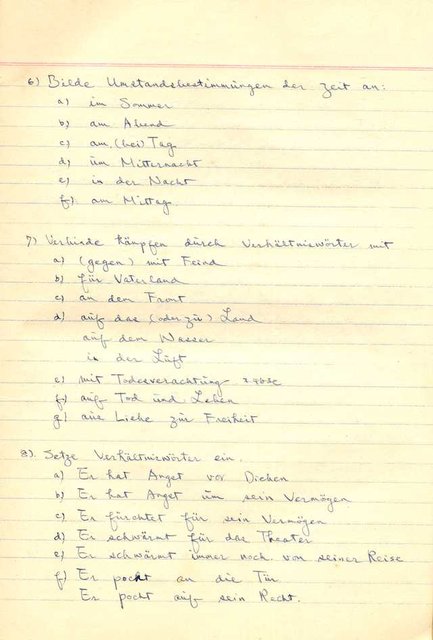 6) Bilde Umstandsbestimmungen der Zeit an:
a) im Sommer
b) am Abend
c) am (bei) Tag
d) um Mitternacht
e) in der Nacht
f) am Mittag
7) Verbinde kämpfen durch Verhältniswörter mit
a) (gegen) mit Feind
b) für Vaterland
c) an dem Front
d) auf das (oder zu) Land
auf dem Wasser
in der Lüft
e) mit Todesverachtung
f) auf Tod und Leben
g) aus Liebe zur Freiheit
8). Setze Verhältniswörter ein.
a) Er hat Angst vor Dieben
b) Er hat Angst um sein Vermögen
c) Er fürchtet für sein Vermögen
d) Er schwärmt für das Theater
e) Er schwärmt immer noch von seiner Reise
f) Er pocht an die Tür
Er pocht auf sein Recht.